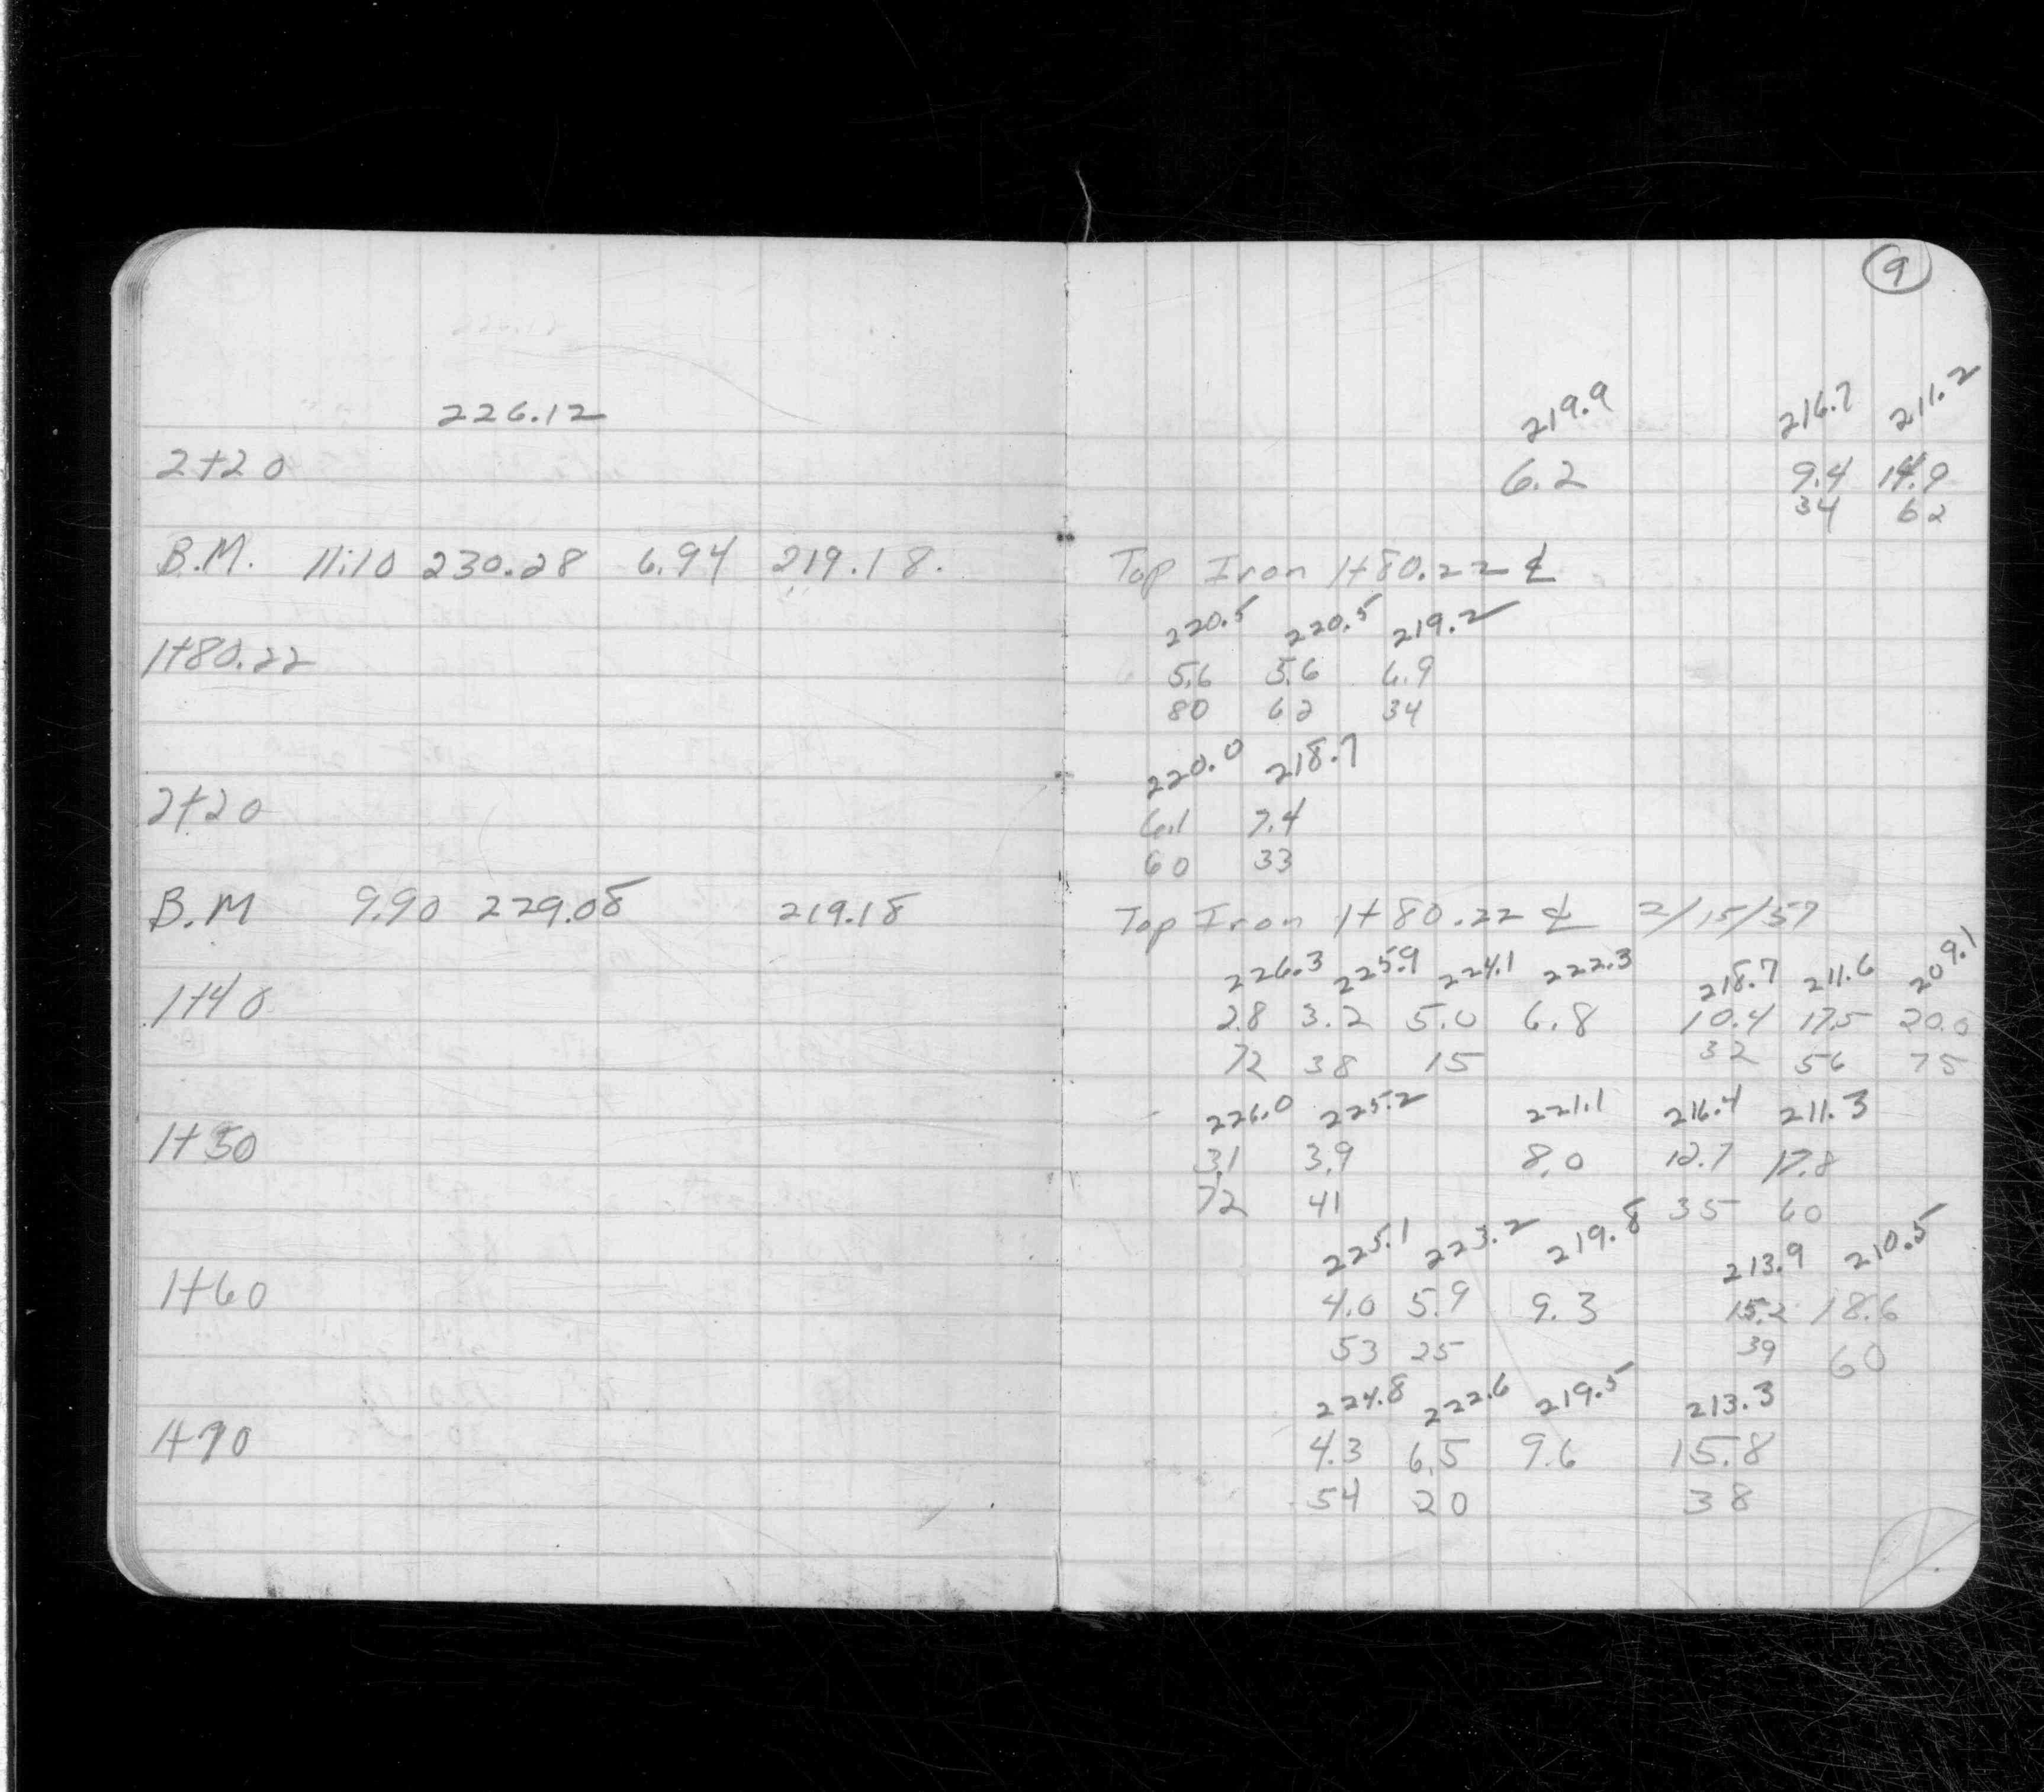 9
226.12
219.9 216.7 211.2
2+20 6.2 9.4 14.9
34 62
B.M. 11.10 230.28 6.94 219.18. Top Iron 1+80.22 ℄
220.5 220.5 219.2
1+80.22 5.6 5.6 6.9
80 62 34
220.0 218.7
2+20 6.1 7.4
60 33
B.M 9.90 229.08 219.18 Top Iron 1+80.22 ℄ 2/15/57
226.3 225.9 224.1 222.3 218.7 211.6 209.1
1+40 2.8 3.2 5.0 6.8 10.4 17.5 20.0
72 38 15 32 56 75
226.0 225.2 221.1 216.4 211.3
1+50 3.1 3.9 8.0 12.7 17.8
72 41 35 60
225.1 223.2 219.8 213.9 210.5
1+60 4.0 5.9 9.3 15.2 18.6
53 25 39 60
224.8 222.6 219.5 213.3
1+70 4.3 6.5 9.6 15.8
54 20 38